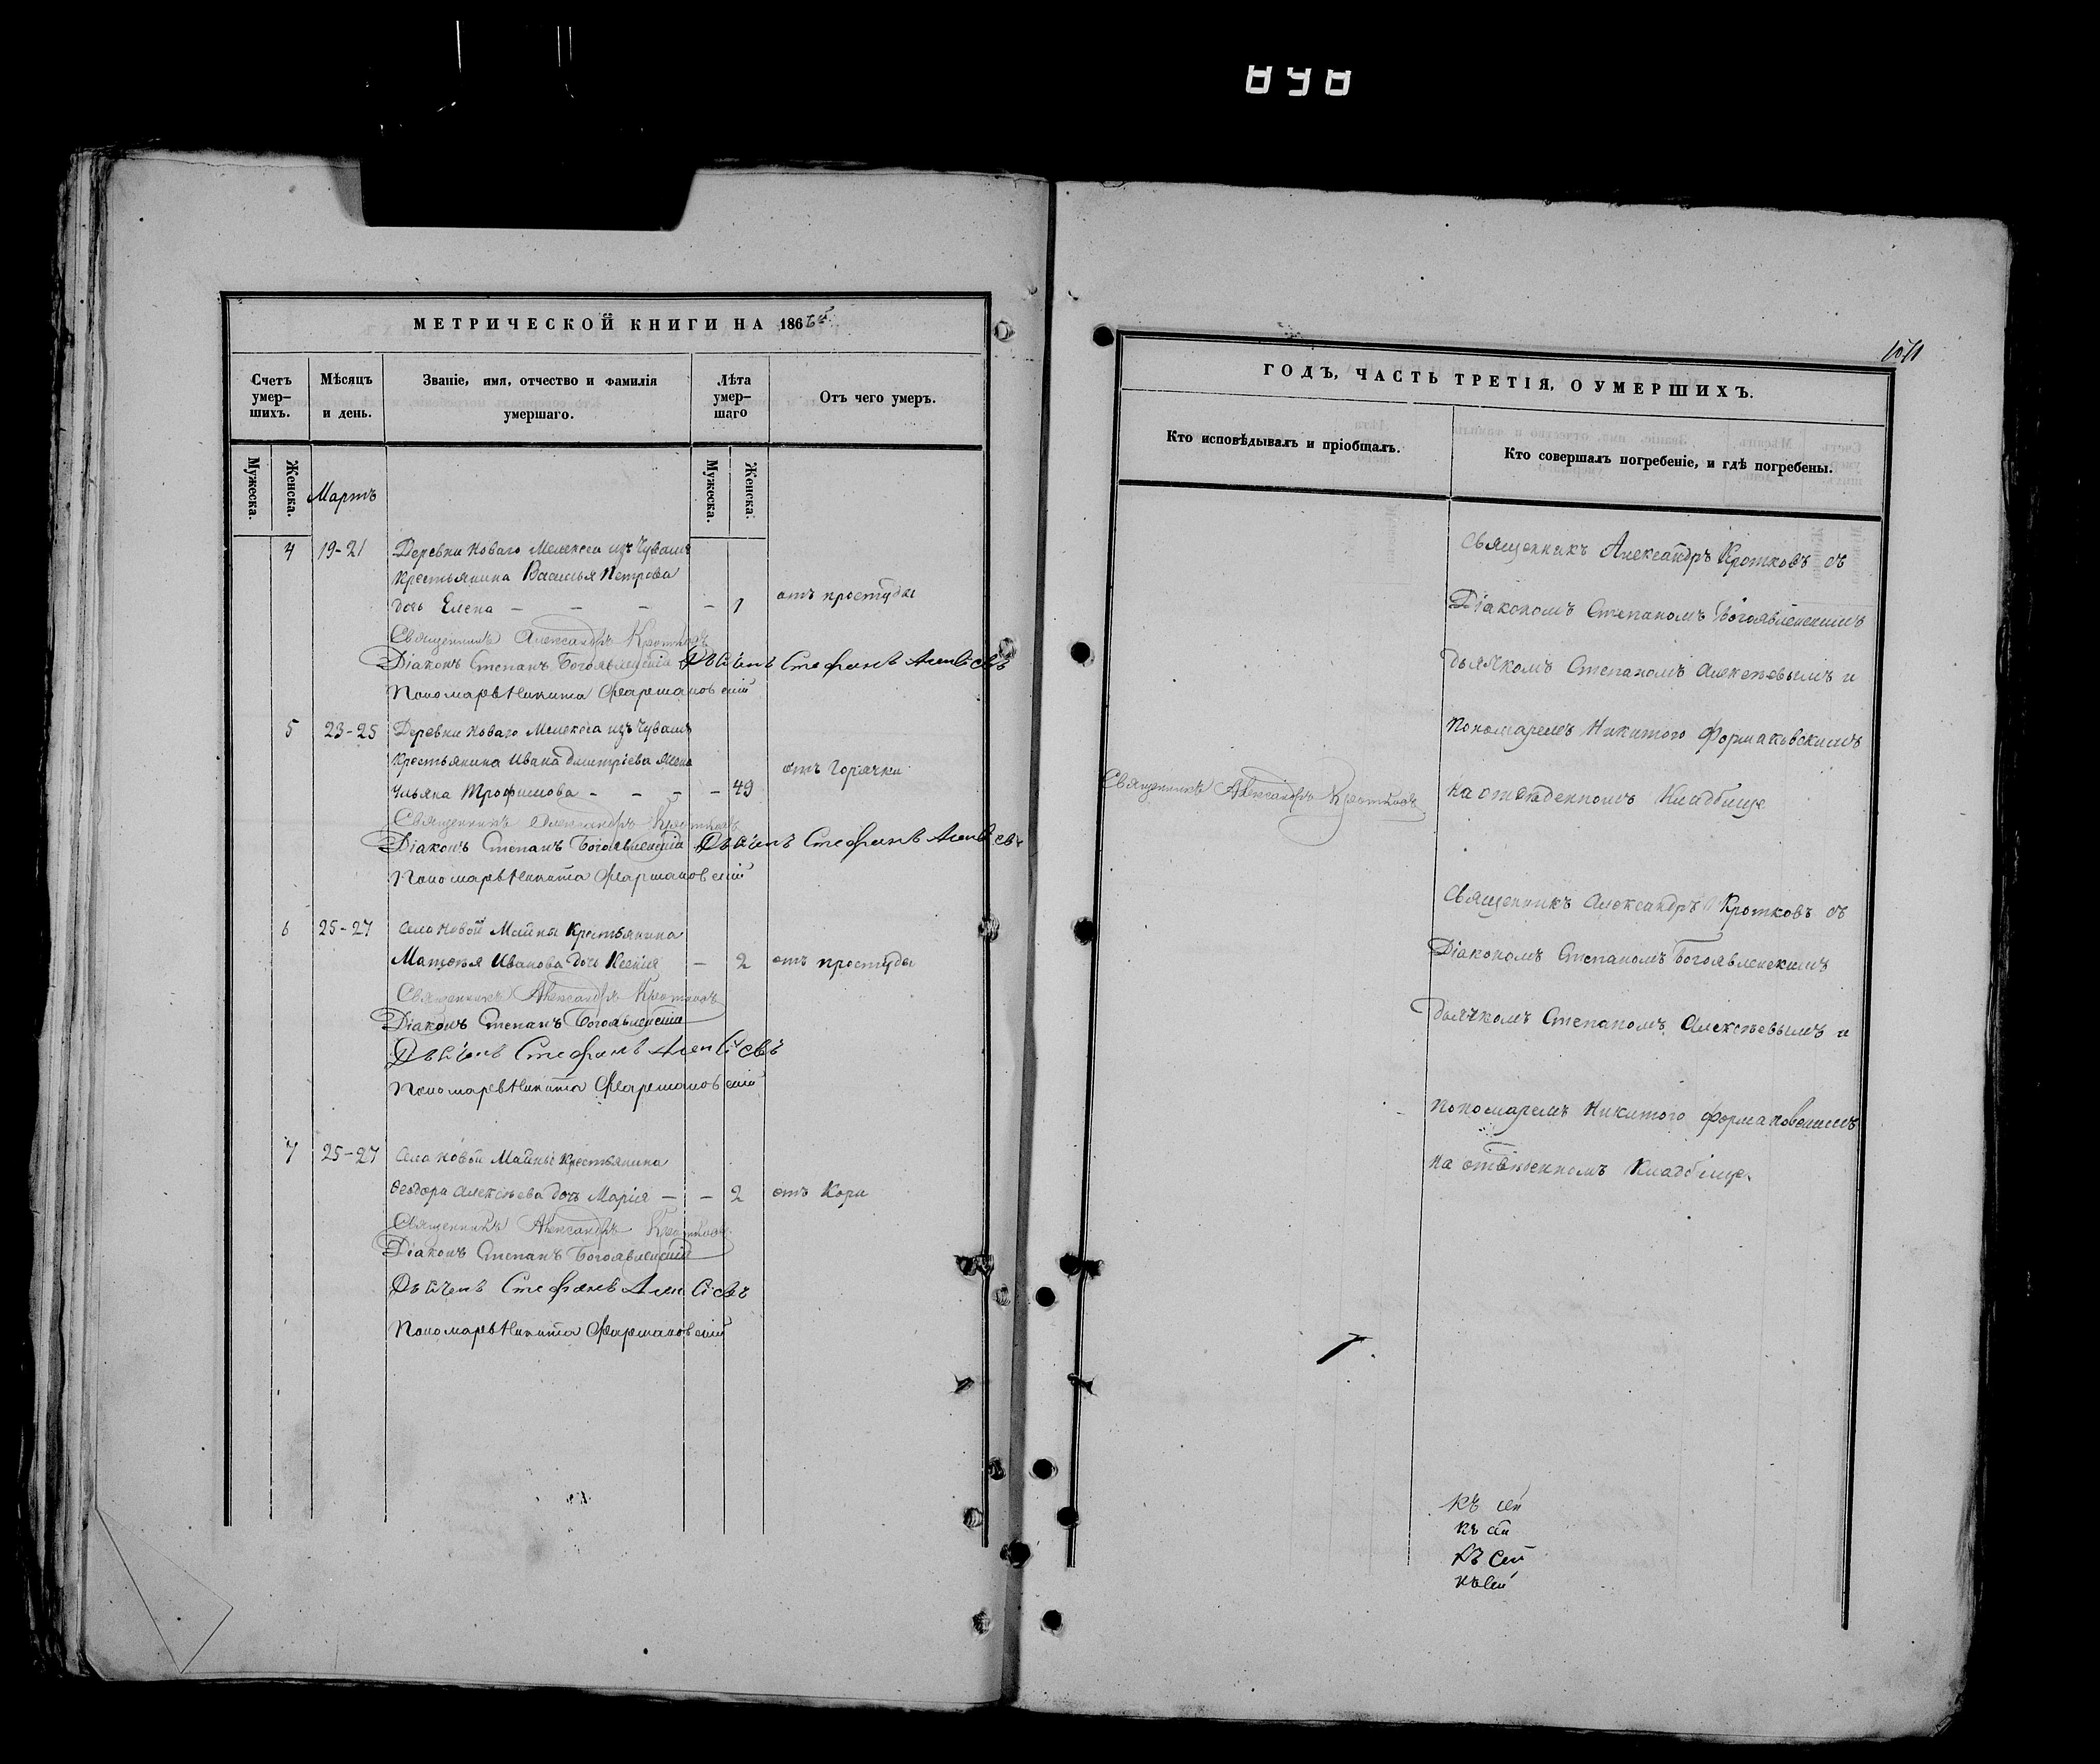 898
МЕТРИЧЕСКОЙ КНИГИ НА 1866й
Счетъ умер-шихъ.
Мѣсяцъ и день.
Званіе, имя, отчество и фамилія умершаго.
Лѣта умер-шаго
Отъ чего умеръ.
Мужеска.
Женска.
Мартъ
Мужеска.
Женска.
4 19-21 Деревни Новаго Мелекеса изъ Чувашъ
Крестьянина Василья Петрова
дочь Елена - - - - 1 отъ простуды
Священникъ Александръ Кротковъ
Діаконъ Степанъ Богоявленскій Дьячекъ Стефанъ Алексѣевъ
Пономарь Никита Фармаковскій
5 23-25 Деревни Новаго Мелекеса изъ Чувашъ
Крестьянина Ивана Дмитріева жена
Ульяна Трофимова - - - - 49 отъ Горячки
Священникъ Александръ Кротковъ
Діаконъ Степанъ Богоявленскій Дьячекъ Стефанъ Алексѣевъ
Пономарь Никита Фармаковскій
6 25-27 Села Новой Майны Крестьянина
Матвѣя Иванова дочь Ксенія - 2 отъ простуды
Священникъ Александръ Кротковъ
Діаконъ Степанъ Богоявленскій
Дьячекъ Стефанъ Алексѣевъ
Пономарь Никита Фармаковскій
7 25-27 Села Новой Майны Крестьянина
Ѳеодора Алексѣева дочь Марія - - 2 отъ Кори
Священникъ Александръ Кротковъ
Діаконъ Степанъ Богоявленскій
Дьячекъ Стефанъ Алексѣевъ
Пономарь Никита Фармаковскій
ГОДЪ, ЧАСТЬ ТРЕТІЯ, О УМЕРШИХЪ.
Кто исповѣдывалъ и пріобщалъ.
Кто совершалъ погребеніе, и гдѣ погребены.
Священникъ Александръ Кротковъ съ
Діакономъ Степаномъ Богоявленскимъ
дьячкомъ Степаномъ Алексѣевымъ и
Пономаремъ Никитою Формаковскимъ
Священникъ Александръ Кротковъ
на отведенномъ Кладбище
Священникъ Александръ Кротковъ съ
Діакономъ Степаномъ Богоявленскимъ
дьячкомъ Степаномъ Алексѣевымъ и
Пономаремъ Никитою Формаковскимъ
на отвѣденномъ Кладбище.
Къ сей
Къ сей
Къ сей
Къ сей